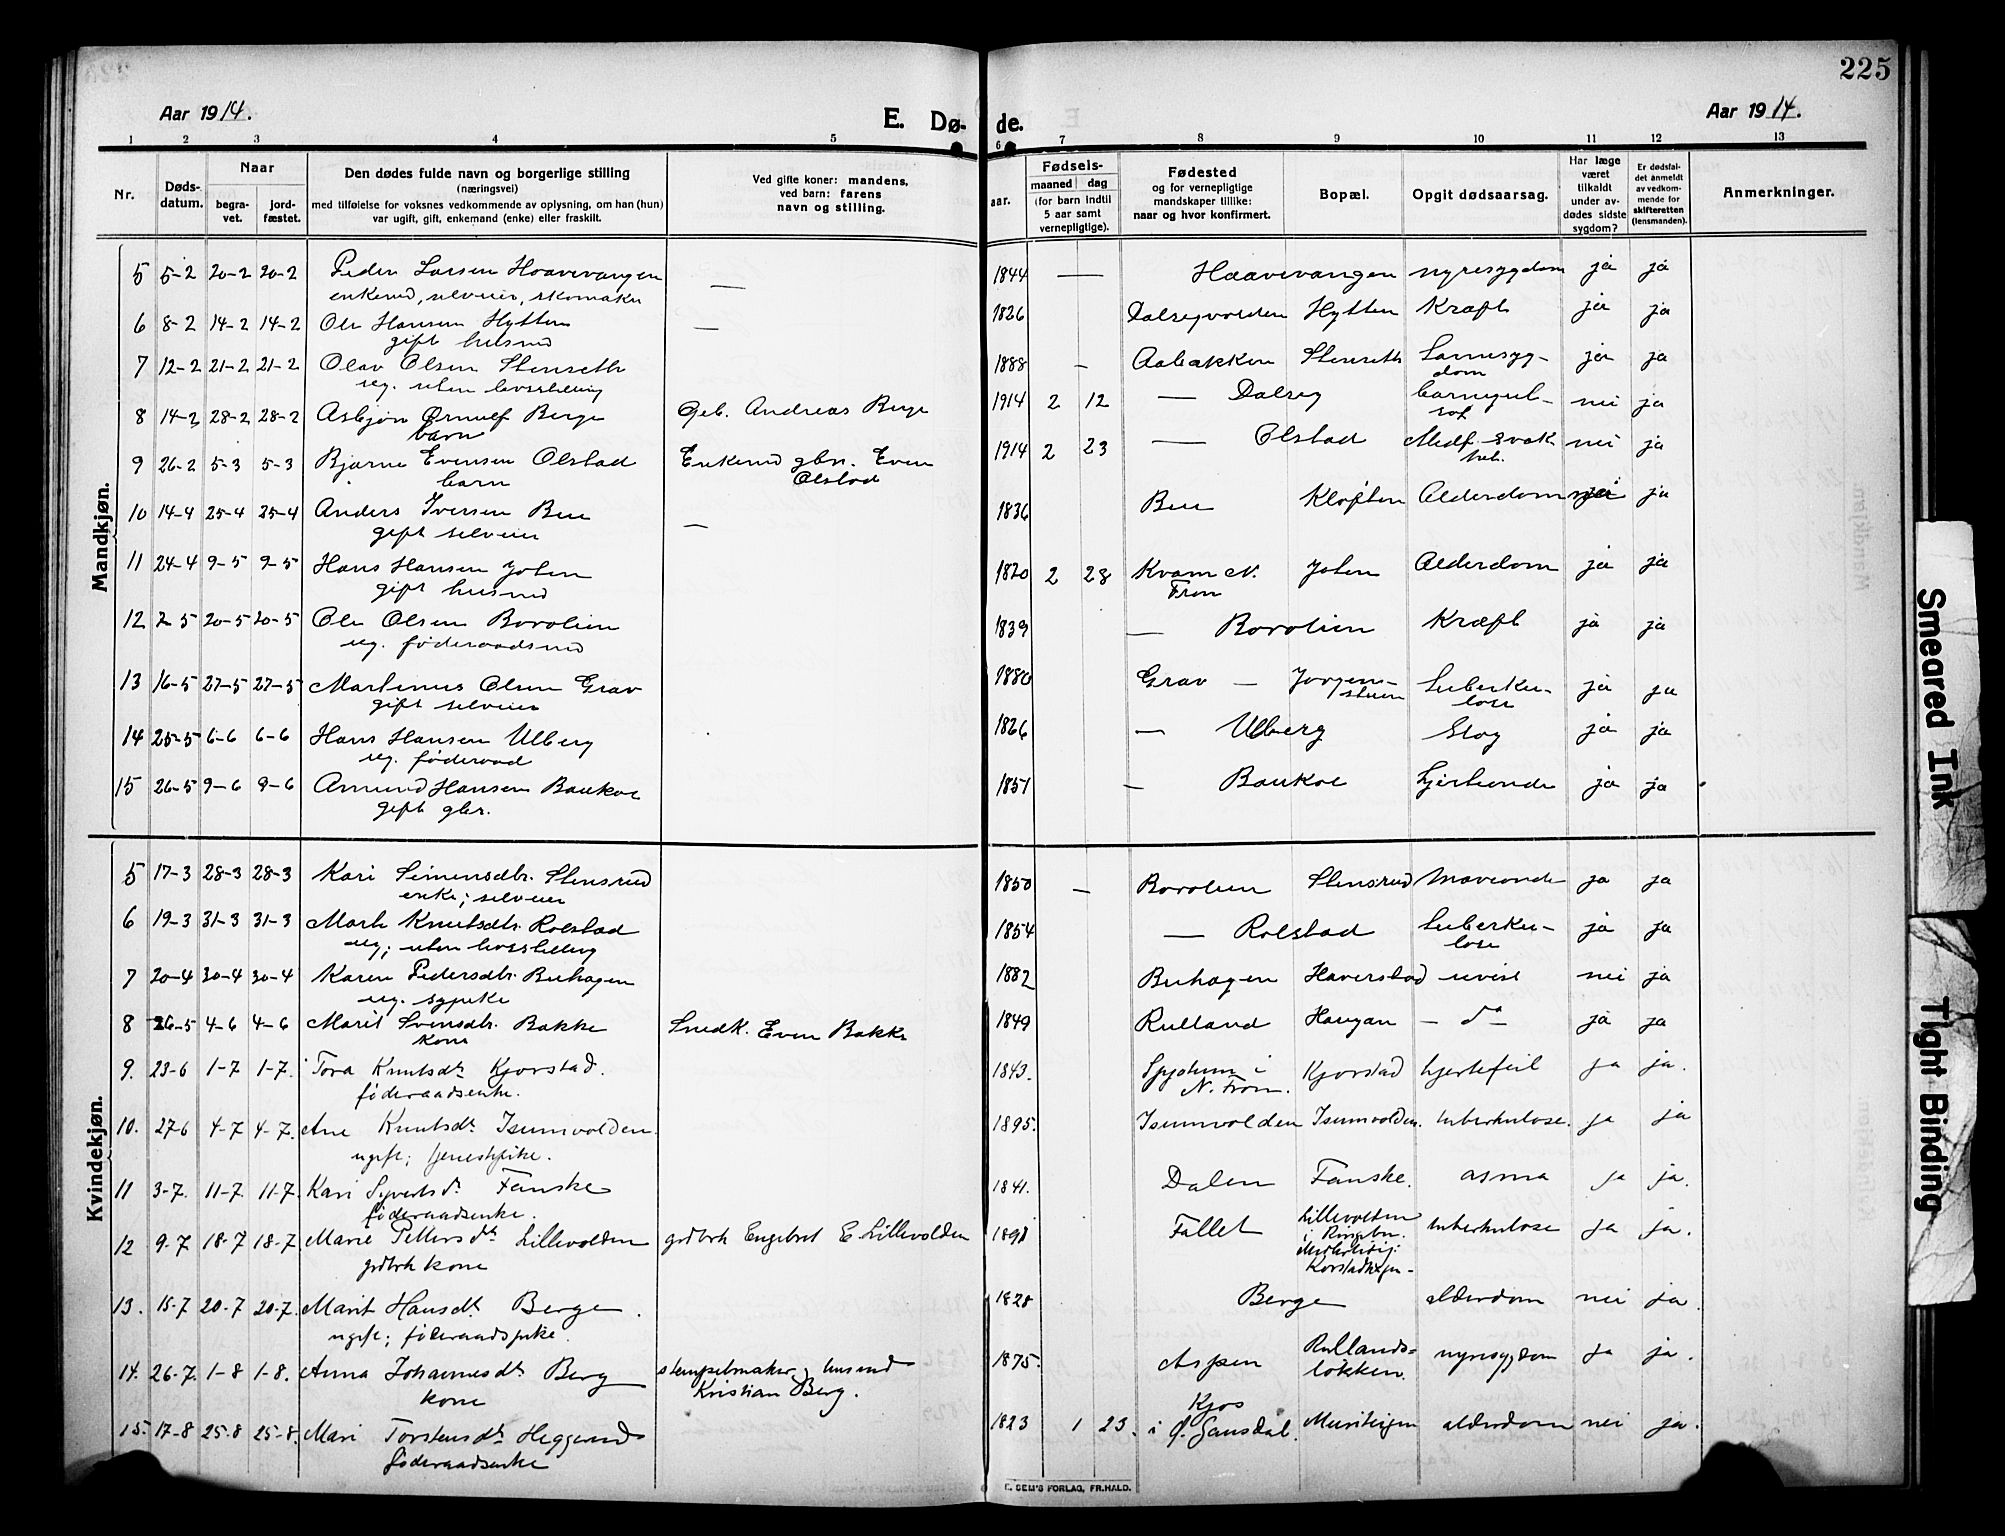 225
Aar 1914.
E. Dø- de.
Aar 1914.
1 2 3 4 5 6 7 8 9 10 11 12 13
Nr.
Døds-datum.
Naar
begra-vet.
jord-fæstet.
Den dødes fulde navn og borgerlige stilling
(næringsvei)
med tilføielse for voksnes vedkommende av oplysning, om han (hun)
var ugift, gift, enkemand (enke) eller fraskilt.
Ved gifte koner: mandens,
ved barn: farens
navn og stilling.
aar.
Fødsels-
maaned dag
(for barn indtil
5 aar samt
vernepligtige).
Fødested
og for vernepligtige
mandskaper tillike:
naar og hvor konfirmert.
Bopæl.
Opgit dødsaarsag.
Har læge
været
tilkaldt
under av-
dødes sidste
sygdom?
Er dødsfal-
det anmeldt
av vedkom-
mende for
skifteretten
(lensmanden).
Anmerkninger.
Mandkjøn.
5 5-2 20-2 20-2 Peder Larsen Haavevangen — 1844 — Haavevangen nyresygdom ja ja
enkemd, selveier, skomaker
6 8-2 14-2 14-2 Ole Hansen Hytten — 1826 Dalsegvolden Hytten Kræft ja ja
gift husmd
7 12-2 21-2 21-2 Olav Olsen Stenseth 1888 — Aabakken Stenseth ja ja
ug. uten livsstilling
8 14-2 28-2 28-2 Asbjørn Ørnulf Berge Andreas Berge 1914 2 12 — Dalseg barnegul-sot nei ja
barn
9 26-2 5-3 5-3 Bjarne Evensen Olstad Enkemd gbr. Even Olstad 1914 2 23 — Olstad Medf. svak-het. nei ja
barn
10 14-4 25-4 25-4 Anders Iversen Bue — 1836 Bue Kløften Alderdom ja
gift selveier
11 24-4 9-5 9-5 Hans Hansen Joten 1820 2 28 Kvam N. Fron Joten Alderdom ja ja
gift husmd
12 2-5 20-5 20-5 Ole Olsen Borolien 1839 — Borolien Kræft ja ja
ug. føderaadsmd
13 16-5 27-5 27-5 Martinus Olsen Grav 1880 Grav — Jørgens-stuen Tuberku-lose ja ja
gift selveier
14 25-5 6-6 6-6 Hans Hansen Ulberg 1826 — Ulberg Slag ja ja
ug. føderaad
15 26-5 9-6 9-6 Amund Hansen Baukol 1851 — Baukol hjerteonde ja ja
gift gbr.
Kvindekjøn.
5 17-3 28-3 28-3 Kari Simensdtr. Stensrud 1850 — Borolien Stensrud maveonde ja ja
enke; selveier
6 19-3 31-3 31-3 Marte Knutsdtr. Rolstad 1854 — Rolstad Tuberku-lose ja ja
ug; uten livsstilling
7 20-4 30-4 30-4 Karen Pedersdtr. Buhagen 1882 Buhagen Haverstad uvist nei ja
ug. sypike
8 26-5 4-6 4-6 Marit Svensdtr. Bakke Snedk. Even Bakke 1849 Rulland Haugan — do — ja ja
kone
9. 23-6 1-7 1-7. Tora Knutsdtr Kjorstad. 1843. N. Fron. Kjorstad hjertefeil ja ja.
føderaadsenke.
10. 27-6 4-7 4-7. Ane Knutsdtr Isumvolden. 1895. Isumvolden Isumvolden. tuberkulose. ja ja
ugift; tjenestpike.
11 3-7. 11-7. 11-7. Kari Syvertsdtr Fanske 1841. Dalen Fanske. asma ja ja.
føderaadsenke.
12 9-7 18-7 18-7. Marie Pettersdtr Lillevolden grdbrk Engebret E. Lillevolden Fallet Lillevolden i Ringebu. tuberkulose ja ja.
grdbrk kone
13. 15-7 20-7 20-7. Marit Hansdtr Berge. 1828 Berge alderdom nei ja.
ugift; føderaadspike.
14. 26-7. 1-8 1-8. Anna Johannesdtr Berg stempelmaker og husmd Kristian Berg. 1875. Aspen Rullands-løkken. nyresygdom ja ja.
kone
15. 17-8 25-8 25-8. Mari Torstensdtr Heggerud 1823 1 23. Kjos i Ø. Gausdal. alderdom nei ja.
føderaadsenke
E. SEM'S FORLAG, FR.HALD.
Smeared Ink
Tight Binding